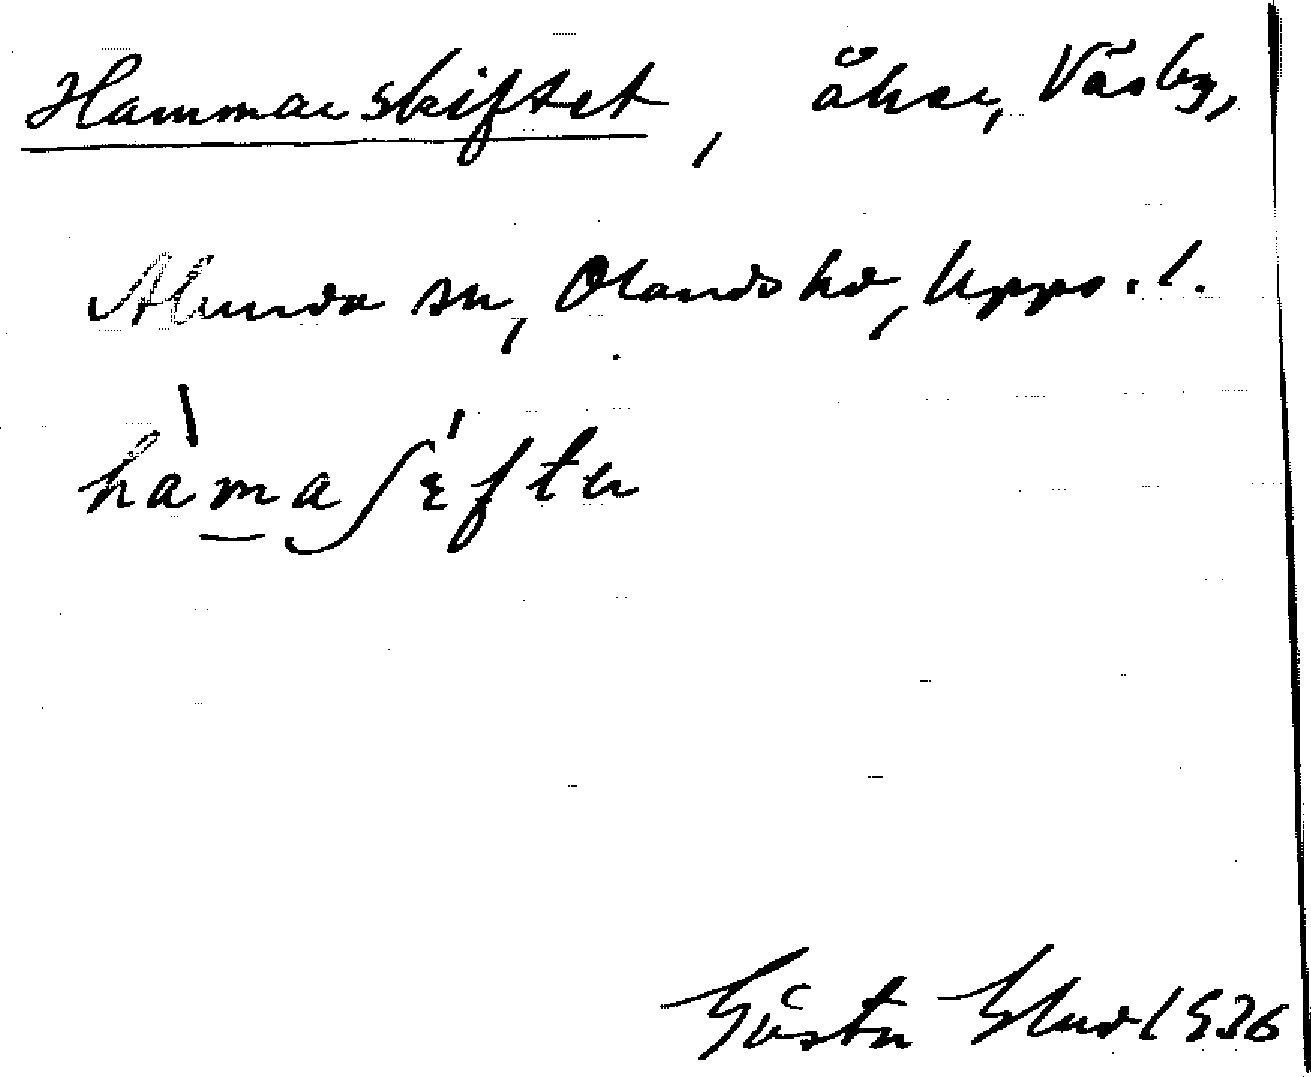 Hammarskiftet, åker, Väsby,
Alunda sn, Olands hd, Upps. l.
hàmaʃɛ́ftɐ
Gösta 1936